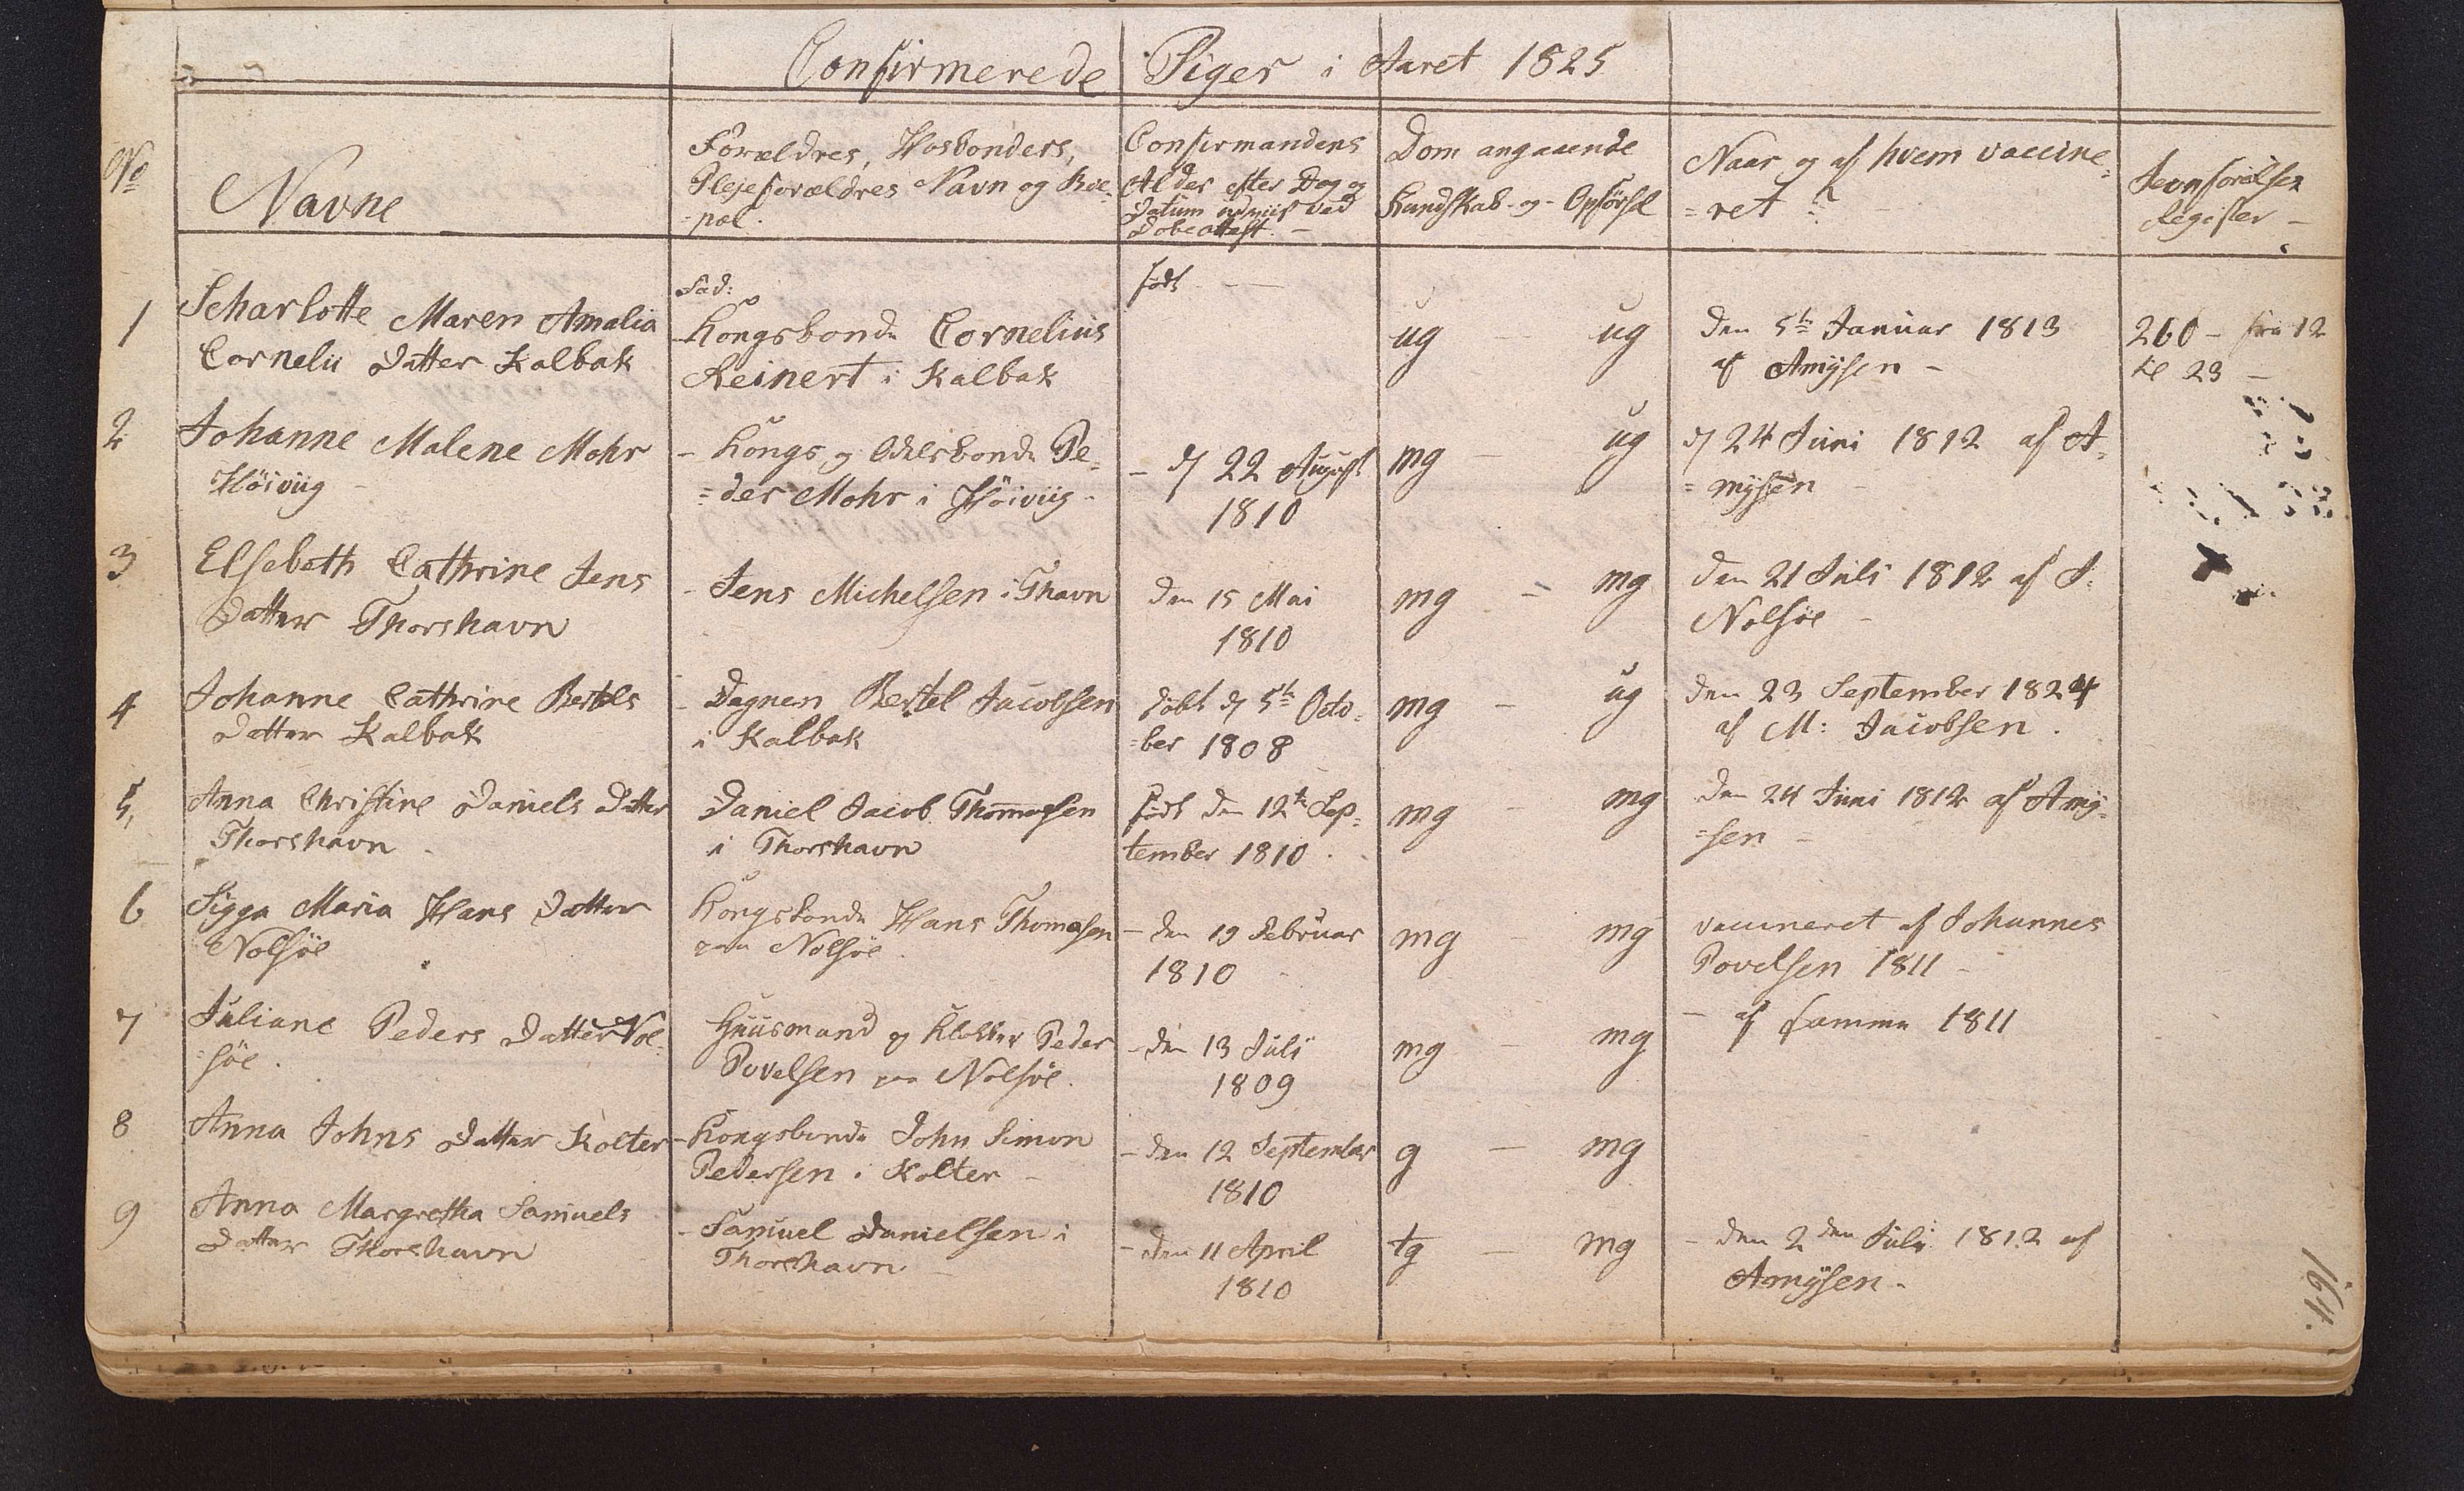 Confirmerede Piger i Aaret 1825
No
Navne
Forældres, Hosbonders,
Plejeforældres Navn og Boe-
=pæl.
Confirmandens
Alder efter Dag og
Datum udviist ved
Døbeattest. -
Dom angaaende
Kundskab- og- Opførsel
Naar og af hvem vaccine-
=ret ?
Jevnførelses
Register -
1
Scharlotte Maren Amalia
Cornelii Datter Kalbak
Fad:
Kongsbonde Cornelius
Reinert i Kalbak
født -
ug - ug
Den 5te Januar 1813
af Amÿsen -
260 - fra 12
til 23 -
2
Johanne Malene Mohr
Höiviig -
- Kongs og Odelsbonde Pe-
=der Mohr i Höiviig -
- d 22 August
1810
mg - ug
d 24 Juni 1812 af A-
=mÿsen -
3
Elsebeth Cathrine Jens
Datter Thorshavn
- Jens Michelsen i Thavn
den 15 Mai
1810
mg - mg
den 21 Juli 1812 af J:
Nolsöe -
4
Johanne Cathrine Bertels
Datter Kalbak
- Dagnen Bertel Jacobsen
i Kalbak
døbt d 5te Octo-
=ber 1808
mg - ug
den 23 September 1824
af M: Jacobsen.
5,
Anna Christine Daniels Datter
Thorshavn -
Daniel Jacob Thommesen
i Thorshavn
født den 12te Sep-
tember 1810.
mg - mg
den 24 Juni 1812 af Amÿ-
=sen -
6
Sigga Maria Hans Datter
Nolsöe
Kongsbonde Hans Thomasen
paa Nolsöe.
- den 19 Februar
1810 -
mg - mg
vaccineret af Johannes
Povelsen 1811 -
7
Juliane Peders Datter Nol-
=söe.
Huusmand og Klokker Peder
Povelsen paa Nolsöe.
- den 13 Juli
1809
mg - mg
- af samme 1811
8
Anna Johns Datter Kolter
- Kongsbonde John Simon
Pedersen i Kolter -
- den 12 September
1810
g - mg
9
Anna Margretha Samuels
Datter Thorshavn
- Samuel Danielsen i
Thorshavn -
- den 11 April
1810
tg - mg
- den 2den Juli 1812 af
Amÿsen -
161.